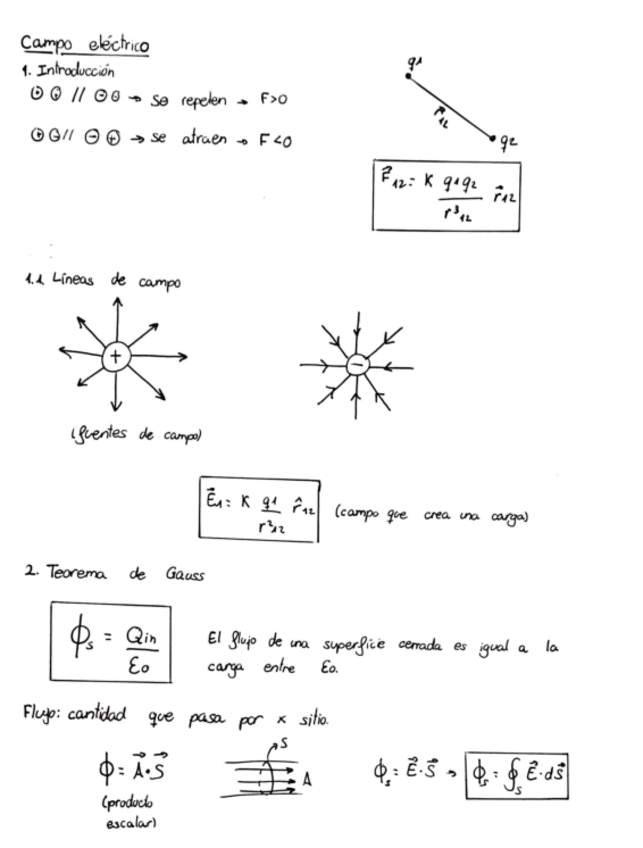 Campo eléctrico
1. Introducción
⊕ ⊕ // ⊖ ⊖ → se repelen → F>0
⊕ ⊖ // ⊖ ⊕ → se atraen → F<0
q1
r⃗12
q2
F⃗12 = K q1q2 / r³12 r⃗12
1.1 Líneas de campo
+
−
(fuentes de campo)
E⃗1 = K q1 / r²12 r̂12 (campo que crea una carga)
2. Teorema de Gauss
ϕs = Qin / εo
El flujo de una superficie cerrada es igual a la
carga entre εo.
Flujo: cantidad que pasa por x sitio.
ϕ = A⃗ · S⃗
(producto
escalar)
S
A
ϕs = E⃗ · S⃗ → ϕs = ∮s E⃗ · dS⃗